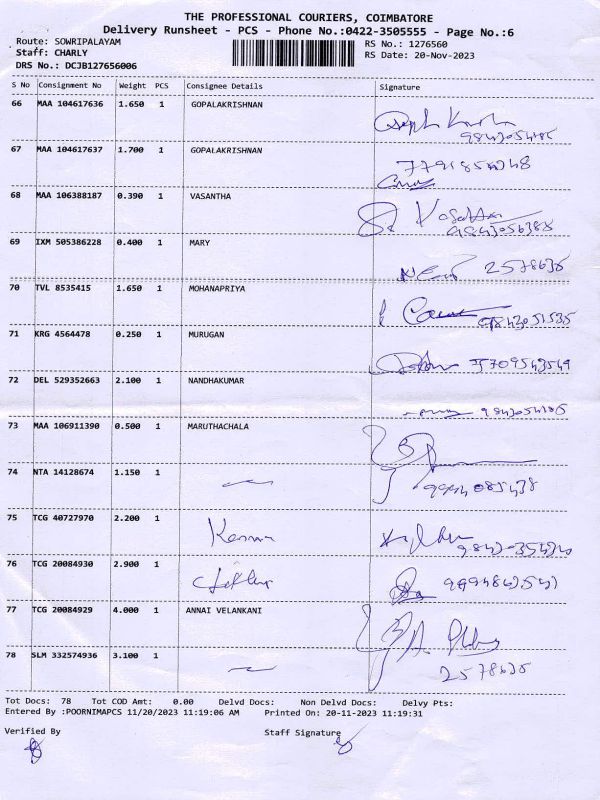 THE PROFESSIONAL COURIERS, COIMBATORE
Delivery Runsheet - PCS - Phone No.:0422-3505555 - Page No.:6
Route: SOWRIPALAYAM RS No.: 1276560
Staff: CHARLY RS Date: 20-Nov-2023
DRS No.: DCJB127656006
S No Consignment No Weight PCS Consignee Details Signature
66 MAA 104617636 1.650 1 GOPALAKRISHNAN
67 MAA 104617637 1.700 1 GOPALAKRISHNAN
68 MAA 106388187 0.390 1 VASANTHA
69 IXM 505386228 0.400 1 MARY
2578635
70 TVL 8535415 1.650 1 MOHANAPRIYA
71 KRG 4564478 0.250 1 MURUGAN
72 DEL 529352663 2.100 1 NANDHAKUMAR
73 MAA 106911390 0.500 1 MARUTHACHALA
74 NTA 14128674 1.150 1
75 TCG 40727970 2.200 1
76 TCG 20084930 2.900 1
77 TCG 20084929 4.000 1 ANNAI VELANKANI
78 SLM 332574936 3.100 1
2578635
Tot Docs: 78 Tot COD Amt: 0.00 Delvd Docs: Non Delvd Docs: Delvy Pts:
Entered By :POORNIMAPCS 11/20/2023 11:19:06 AM Printed On: 20-11-2023 11:19:31
Verified By Staff Signature